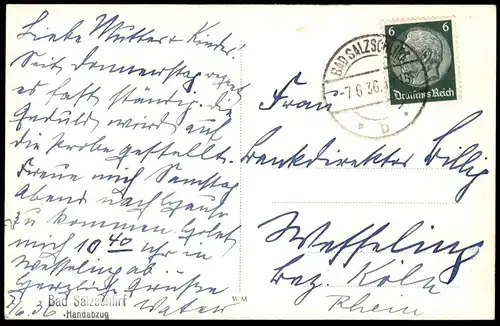 Liebe Mutter + Kinder!
Seit Donnerstag regnet
es fast ständig. die
Geduld wird auf
die Probe gestellt.
Freue mich Samstag
Abend nach Haus
zu kommen. Holet
mich 10 40 Uhr in
Wesseling ab.
Herzliche Grüße
7/6.36 Vater
Bad Salzschlirf
Handabzug
WM
BAD SALZSCHLIRF
-7.6.36
b
6 6
Deutsches Reich
Frau
Bankdirektor Billig
Wesseling
Bez. Köln
Rhein